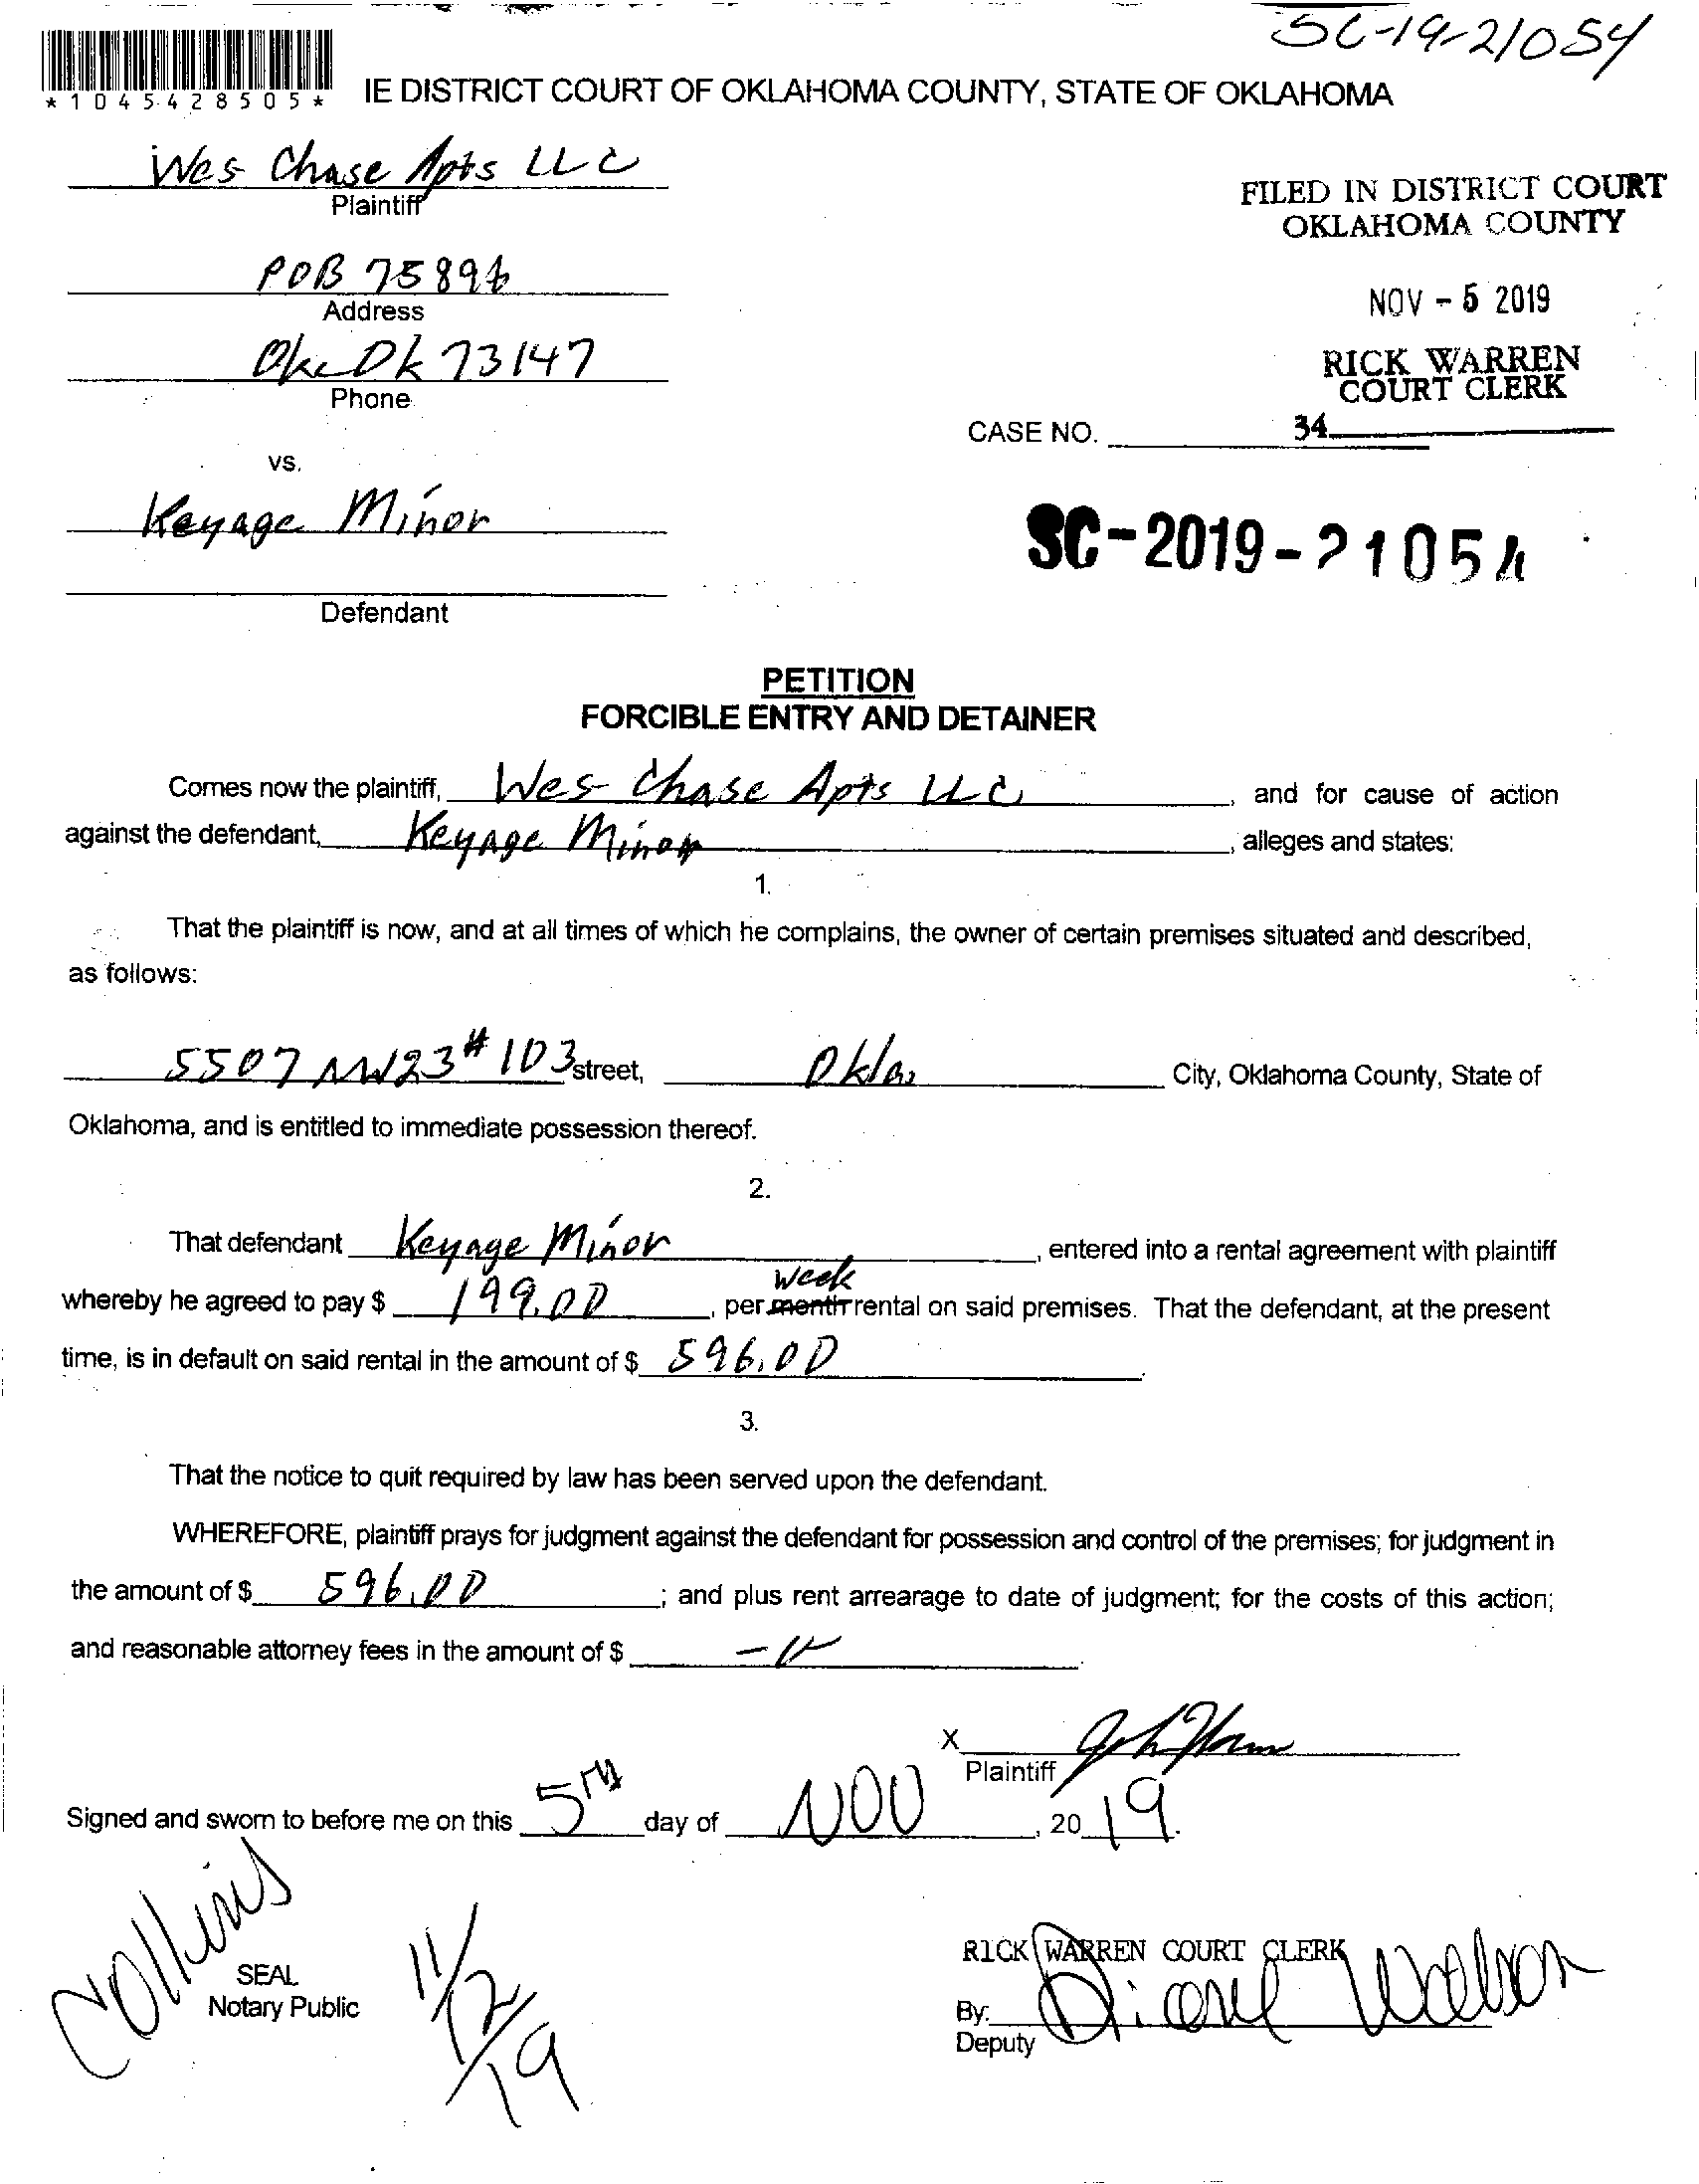 SC-19-21054
*1045428505*
IE DISTRICT COURT OF OKLAHOMA COUNTY, STATE OF OKLAHOMA
Wes Chase Apts LLC
Plaintiff
FILED IN DISTRICT COURT
OKLAHOMA COUNTY
POB 75896
Address
NOV - 5 2019
Okc Ok 73147
Phone
RICK WARREN
COURT CLERK
CASE NO. 34
vs.
Keyage Minor
SC-2019-21054
Defendant
PETITION
FORCIBLE ENTRY AND DETAINER
Comes now the plaintiff, Wes Chase Apts LLC, and for cause of action
against the defendant, Keyage Minor, alleges and states:
1.
That the plaintiff is now, and at all times of which he complains, the owner of certain premises situated and described,
as follows:
5507 NW23 # 103 street, Okla. City, Oklahoma County, State of
Oklahoma, and is entitled to immediate possession thereof.
2.
That defendant Keyage Minor, entered into a rental agreement with plaintiff
week
whereby he agreed to pay $ 199.00, per month rental on said premises. That the defendant, at the present
time, is in default on said rental in the amount of $ 596.00.
3.
That the notice to quit required by law has been served upon the defendant.
WHEREFORE, plaintiff prays for judgment against the defendant for possession and control of the premises; for judgment in
the amount of $ 596.00; and plus rent arrearage to date of judgment; for the costs of this action;
and reasonable attorney fees in the amount of $
X
Plaintiff
Signed and sworn to before me on this 5TH day of NOV, 2019.
Collins
SEAL
Notary Public
11/12/19
RICK WARREN COURT CLERK
By: Diane Walson
Deputy